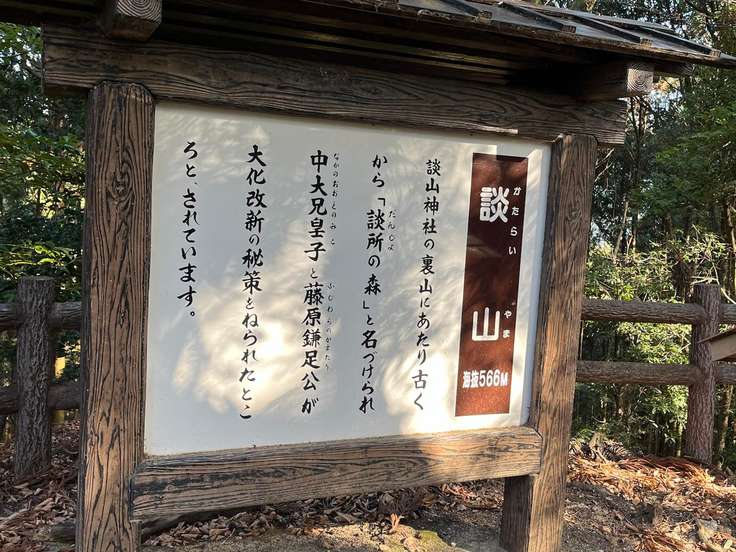 談山
かたらい やま
海抜566M
談山神社の裏山にあたり古く
から「談所の森」と名づけられ
だんじよ
中大兄皇子と藤原鎌足公が
なかのおおえのみこ ふじわらのかまたり
大化改新の秘策をねられたとこ
ろと、されています。